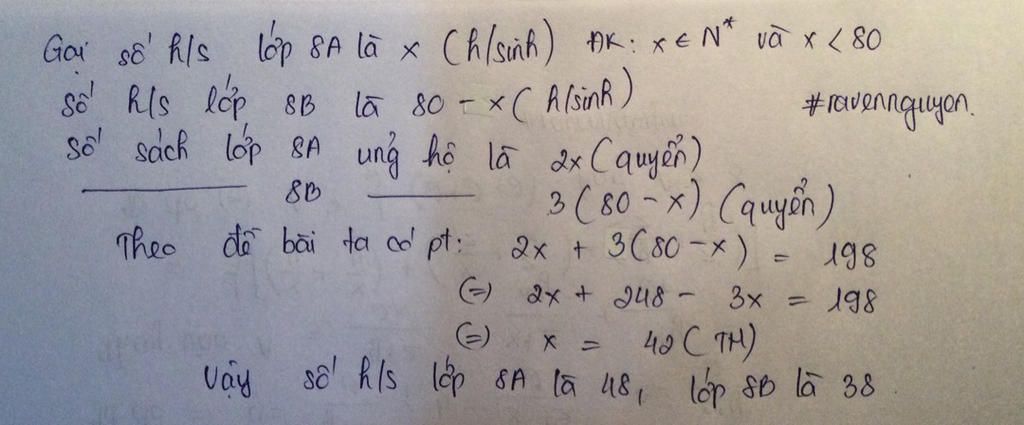 Gọi số h/s lớp 8A là x (h/sinh) ĐK: x ∈ N* và x < 80
số h/s lớp 8B là 80 - x (h/sinh) #ravennguyen.
số sách lớp 8A ủng hộ là 2x (quyển)
—— 8B —— 3 (80 - x) (quyển)
Theo đề bài ta có pt: 2x + 3(80 - x) = 198
(=) 2x + 248 - 3x = 198
(=) x = 42 (TM)
Vậy số h/s lớp 8A là 48, lớp 8B là 38